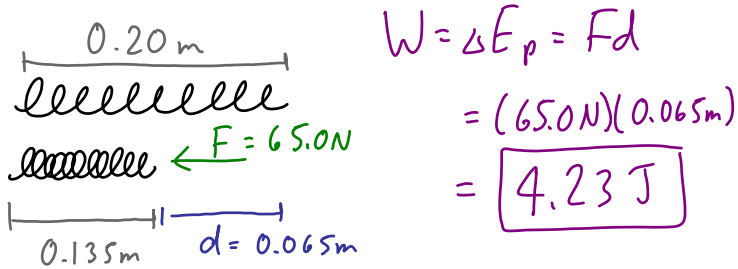 0.20m
F = 65.0N
0.135m
d = 0.065m
W = ΔEp = Fd
= (65.0N)(0.065m)
= 4.23 J